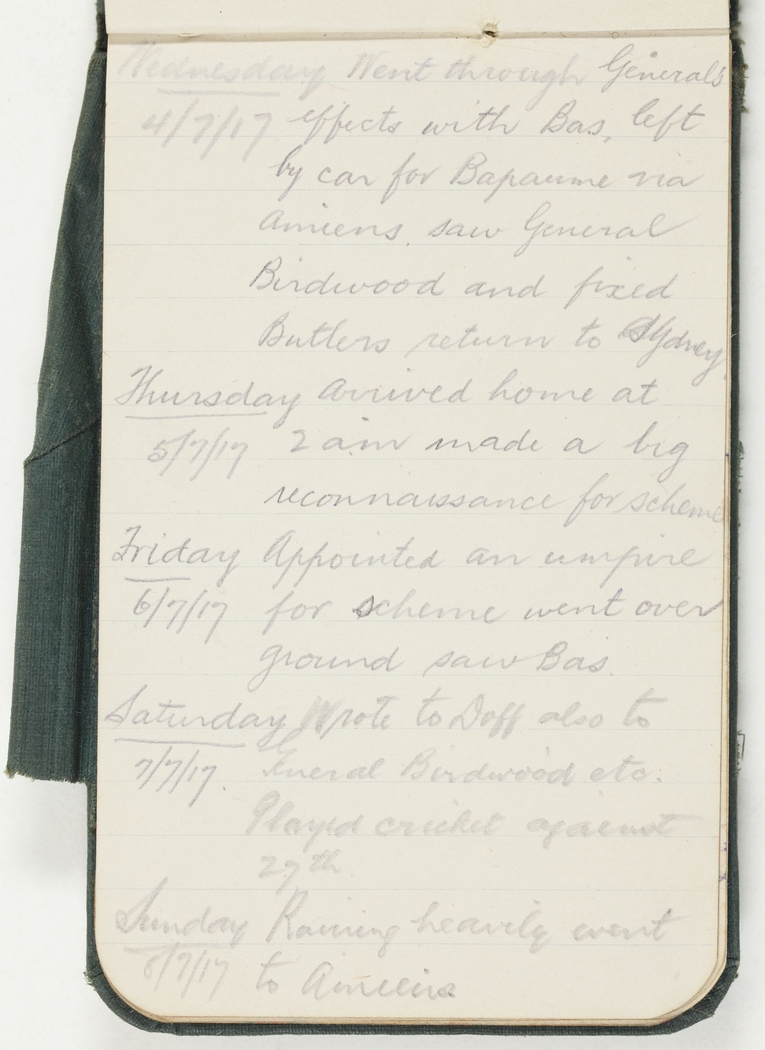 Wednesday Went through General's
4/7/17 effects with Bas, left
by car for Bapaume via
Amiens. saw General
Birdwood and fixed
Butlers return to Sydney.
Thursday arrived home at
5/7/17 2 am made a big
reconnaissance for scheme
Friday Appointed an umpire
6/7/17 for scheme went over
ground saw Bas.
Saturday Wrote to Doff also to
7/7/17. General Birdwood etc.
Played cricket against
27th
Sunday Raining heavily went
8/7/17 to Amiens